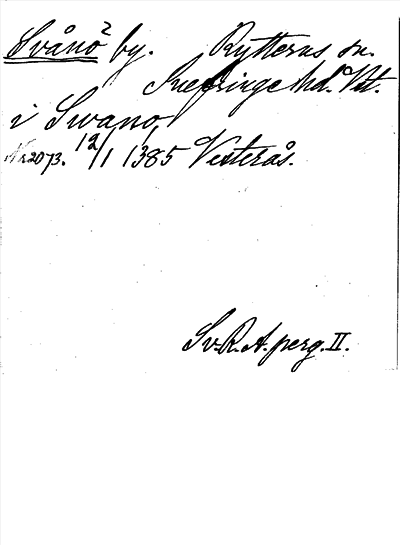 Svånö² by. Rytterns sn.
Snefringe hd. Vst.
i Swanø,
Nr 2073. 12/1 1385 Vesterås.
Sv.R.A. perg. II.